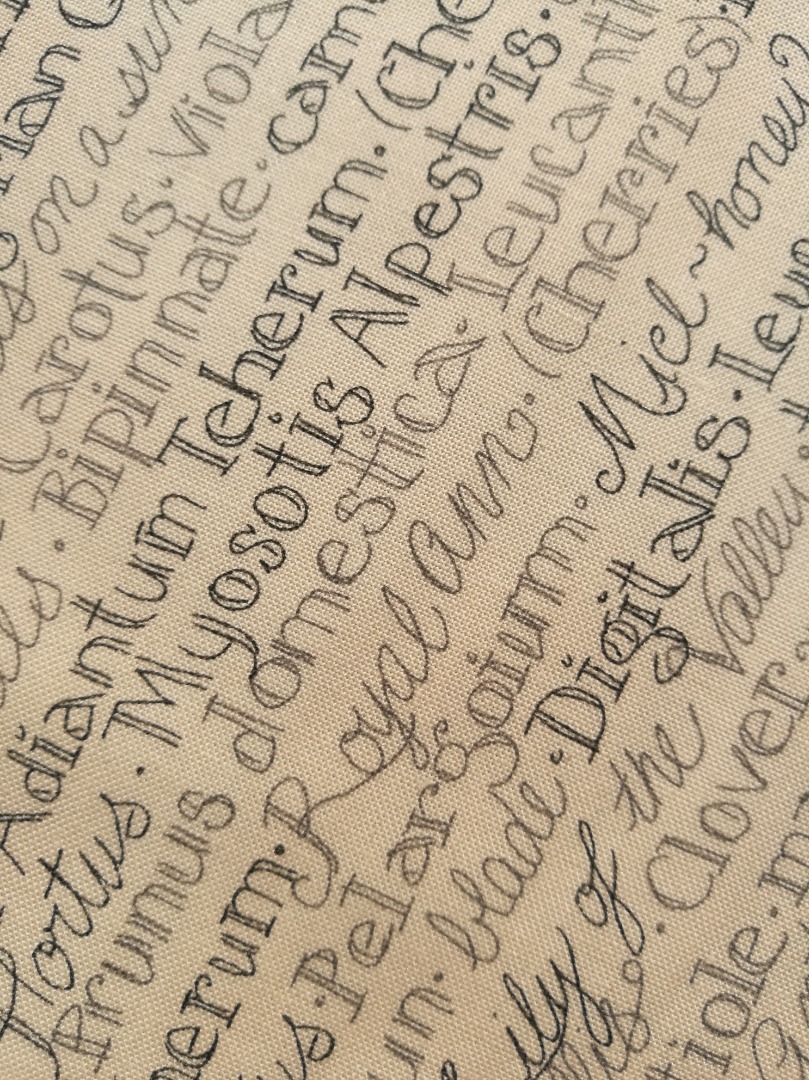 on a sun
Carotus. Viola
. Bipinnate. cam
Adiantum Teherum. (Che
Hortus. Myosotis Alpestris.
Prunus domestica. Leucanth
erum. Royal Ann. (Cherries).
Pelargoium. Miel ~ honey
blade. Digitalis. Leu
ily of the Valley.
. Clover.
iole.